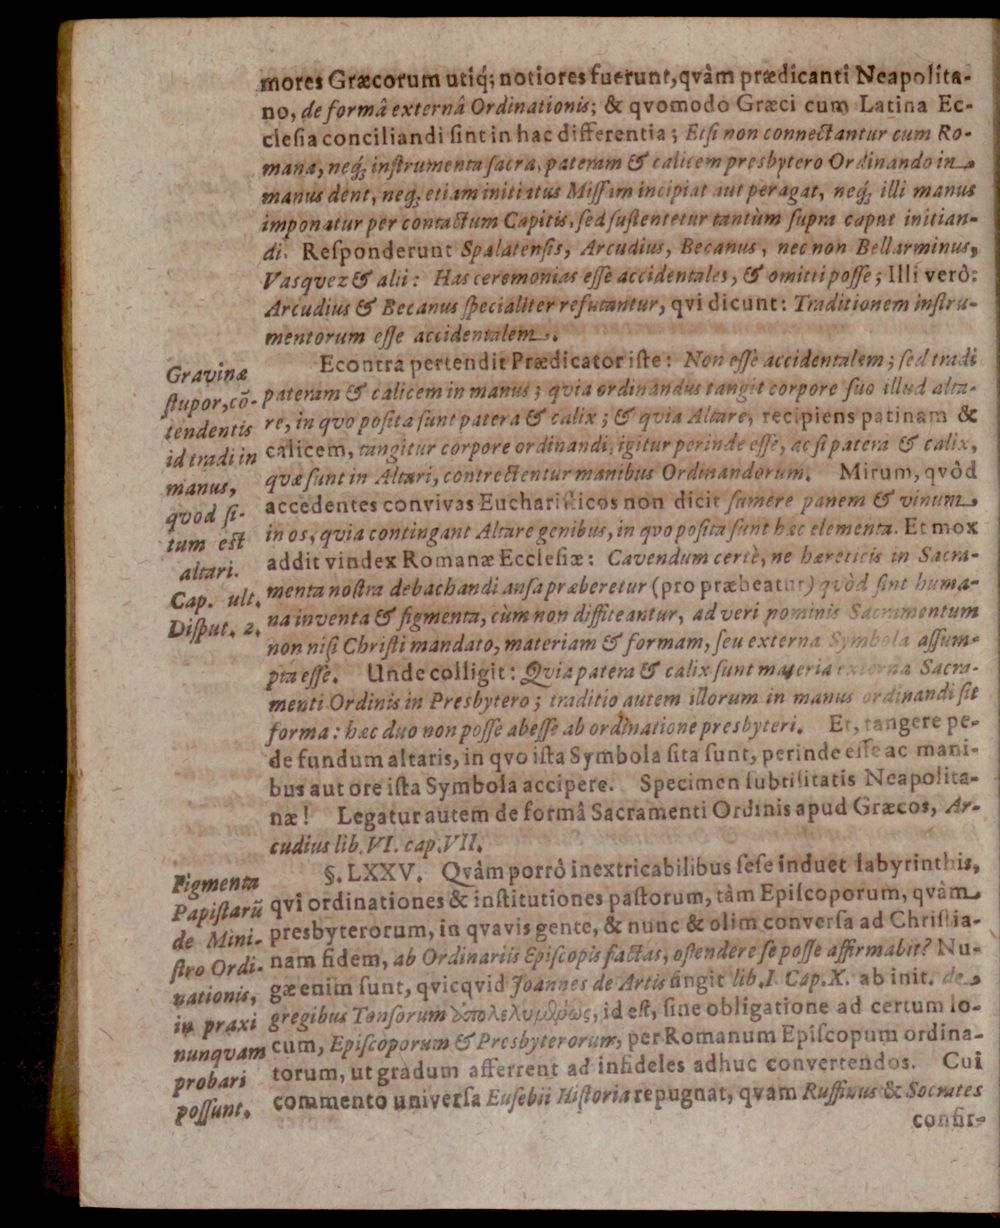 mores Græcorum utiq́; notiores fuerunt, qvàm prædicanti Neapolita-
no, de formâ externâ Ordinationis; & qvomodo Græci cum Latina Ec-
clesia conciliandi sint in hac differentia; Etsi non connectantur cum Ro-
mana, neq́; instrumenta sacra, pateram & calicem presbytero Ordinando in
manus dent, neq́; etiam initiatus Missam incipiat aut peragat, neq́; illi manus
imponatur per contactum Capitis, sed sustentetur tantùm supra caput initian-
di. Responderunt Spalatensis, Arcudius, Becanus, nec non Bellarminus,
Vasquez & alii: Has ceremonias esse accidentales, & omitti posse; Illi verò:
Arcudius & Becanus specialiter refutantur, qvi dicunt: Traditionem instru-
mentorum esse accidentalem.
Gravinæ
stupor, cō-
tendentis
id tradi in
manus,
qvod si-
tum est
altari.
Cap. ult.
Disput. 2.
Econtra pertendit Prædicator iste: Non esse accidentalem; sed tradi
pateram & calicem in manus; qvia ordinandus tangit corpore suo illud alta-
re, in qvo posita sunt patera & calix; & qvia Altare, recipiens patinam &
calicem, tangitur corpore ordinandi, igitur perinde esse, ac si patera & calix,
qvæ sunt in Altari, contrectentur manibus Ordinandorum. Mirum, qvòd
accedentes convivas Eucharisticos non dicit sumere panem & vinum
in os, qvia contingant Altare genibus, in qvo posita sunt hæc elementa. Et mox
addit vindex Romanæ Ecclesiæ: Cavendum certè, ne hæreticis in Sacra-
menta nostra debachandi ansa præberetur (pro præbeatur) qvòd sint huma-
na inventa & figmenta, cùm non diffiteantur, ad veri nominis Sacramentum
non nisi Christi mandato, materiam & formam, seu externa Symbola assum-
pta esse. Unde colligit: Qvia patera & calix sunt materia externa Sacra-
menti Ordinis in Presbytero; traditio autem illorum in manus ordinandi sit
forma: hæc duo non posse abesse ab ordinatione presbyteri. Et, tangere pe-
de fundum altaris, in qvo ista Symbola sita sunt, perinde esse ac mani-
bus aut ore ista Symbola accipere. Specimen subtilitatis Neapolita-
næ! Legatur autem de formâ Sacramenti Ordinis apud Græcos, Ar-
cudius lib. VI. cap. VII.
Figmenta
Papistarū
de Mini-
stro Ordi-
nationis,
in praxi
nunquam
probari
possunt.
§. LXXV. Qvàm porrò inextricabilibus sese induet labyrinthis,
qvi ordinationes & institutiones pastorum, tàm Episcoporum, qvàm
presbyterorum, in qvavis gente, & nunc & olim conversa ad Christia-
nam fidem, ab Ordinariis Episcopis factas, ostendere se posse affirmabit? Nu-
gæ enim sunt, qvicqvid Joannes de Artis fingit lib. I. Cap. X. ab init. de
gregibus Tonsorum id est, sine obligatione ad certum lo-
cum, Episcoporum & Presbyterorum, per Romanum Episcopum ordina-
torum, ut gradum afferrent ad infideles adhuc convertendos. Cui
commento universa Eusebii Historia repugnat, qvam Ruffinus & Socrates
confir-